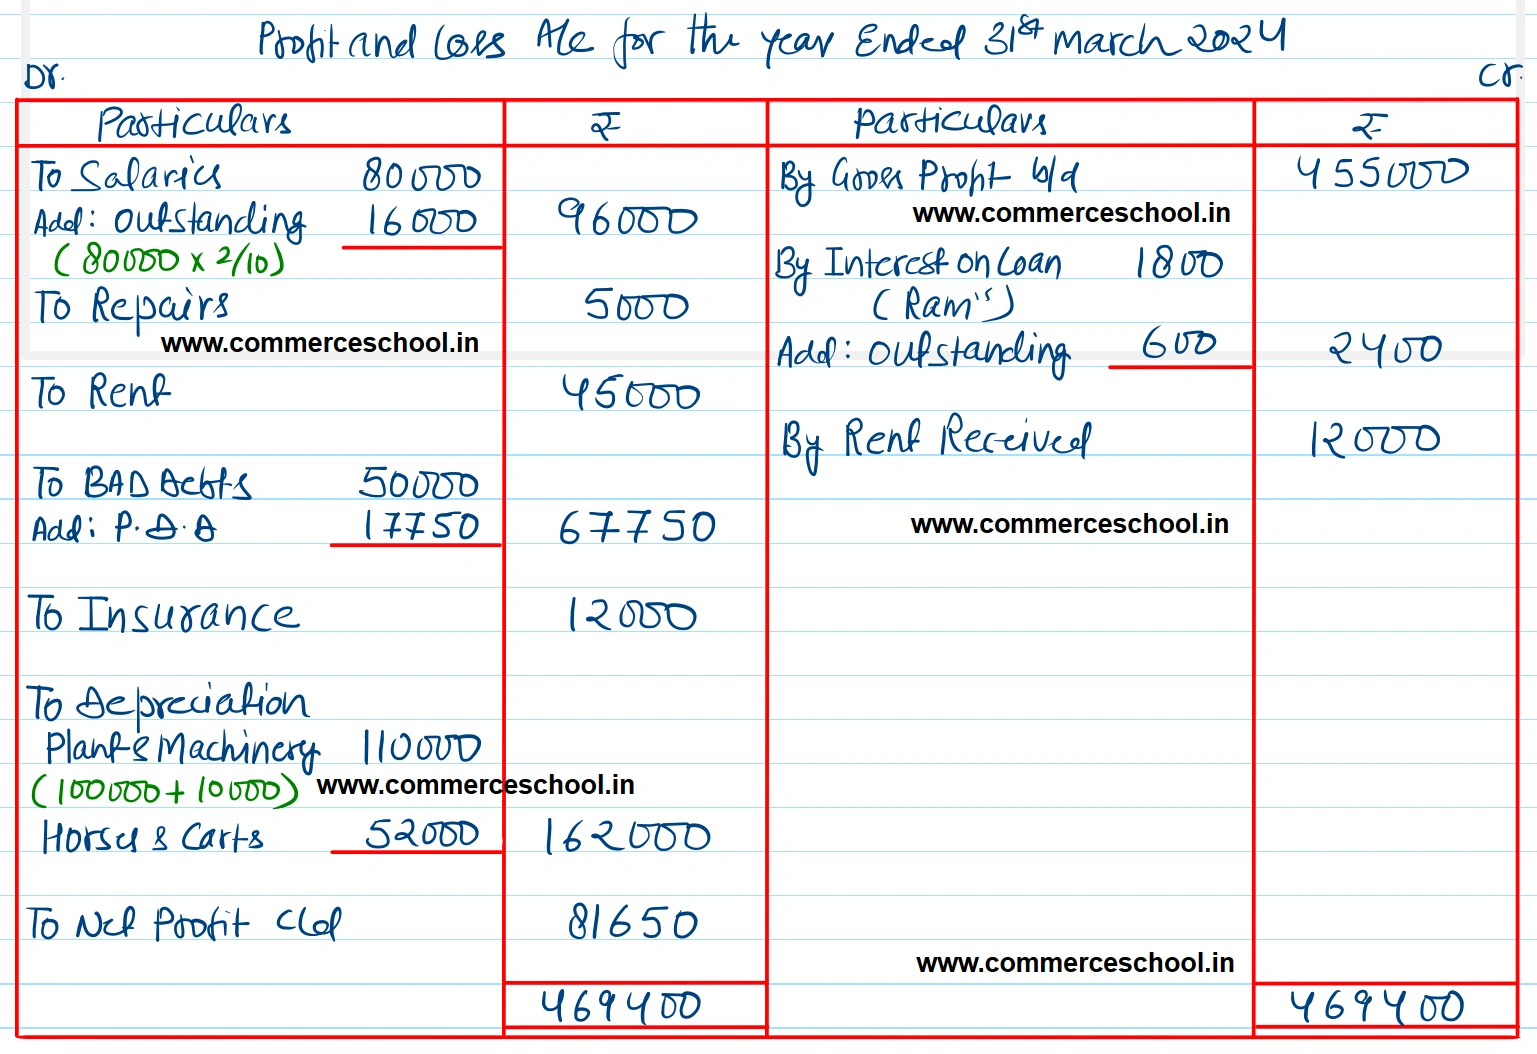 Profit and Loss A/c for the year Ended 31st March 2024
Dr.
Cr.
Particulars ₹ Particulars ₹
To Salaries 80000
Add: Outstanding 16000 96000
(80000 x 2/10)
To Repairs 5000
www.commerceschool.in
To Rent 45000
To BAD Debts 50000
Add: P.D.D 17750 67750
To Insurance 12000
To Depreciation
Plant & Machinery 110000
(100000 + 10000) www.commerceschool.in
Horses & Carts 52000 162000
To Net Profit c/d 81650
469400
By Gross Profit b/d 455000
www.commerceschool.in
By Interest on Loan 1800
(Ram's)
Add: Outstanding 600 2400
By Rent Received 12000
www.commerceschool.in
www.commerceschool.in
469400